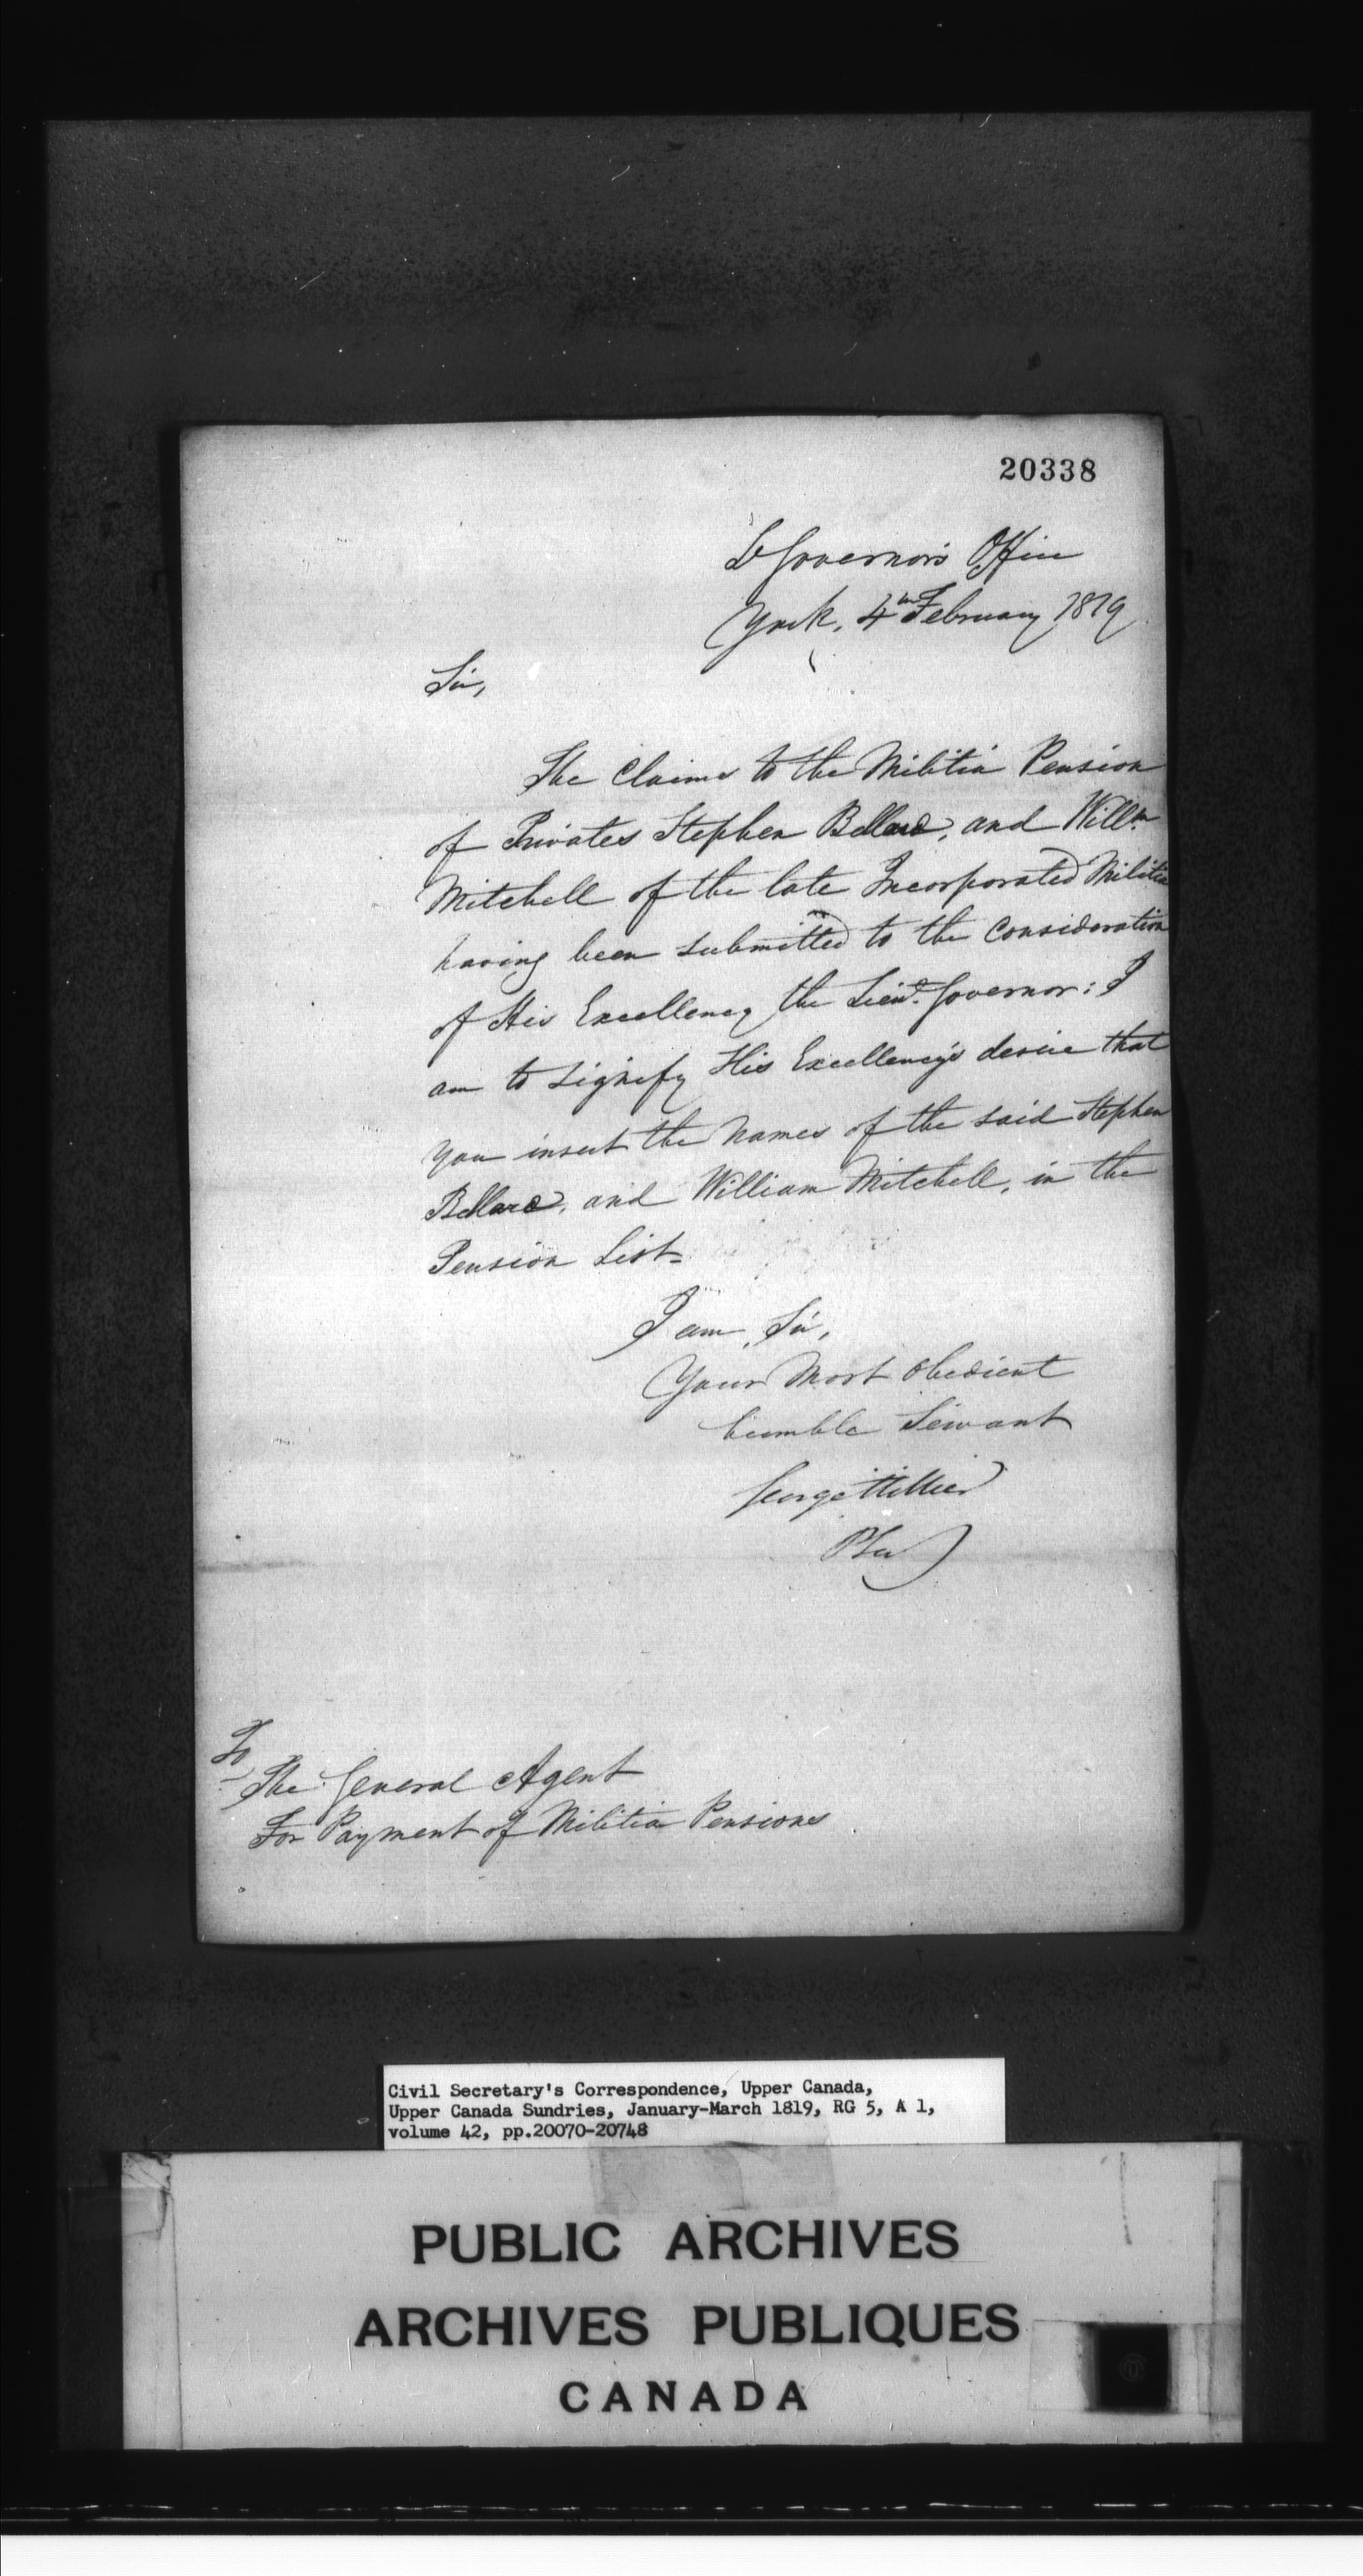 20338
Lt Governor's Office
York, 4th February 1819
Sir,
The Claims to the Militia Pension
of Privates Stephen Bellard, and Willm
Mitchell of the late Incorporated Militia
having been submitted to the Consideration
of His Excellency the Lieut. Governor: I
am to signify His Excellency's desire that
you insert the Names of the said Stephen
Bellard, and William Mitchell, in the
Pension List.
I am, Sir,
Your Most Obedient
humble Servant
George Hillier
P Sec
To
The General Agent
For Payment of Militia Pensions
Civil Secretary's Correspondence, Upper Canada,
Upper Canada Sundries, January-March 1819, RG 5, A 1,
volume 42, pp.20070-20748
PUBLIC ARCHIVES
ARCHIVES PUBLIQUES
CANADA